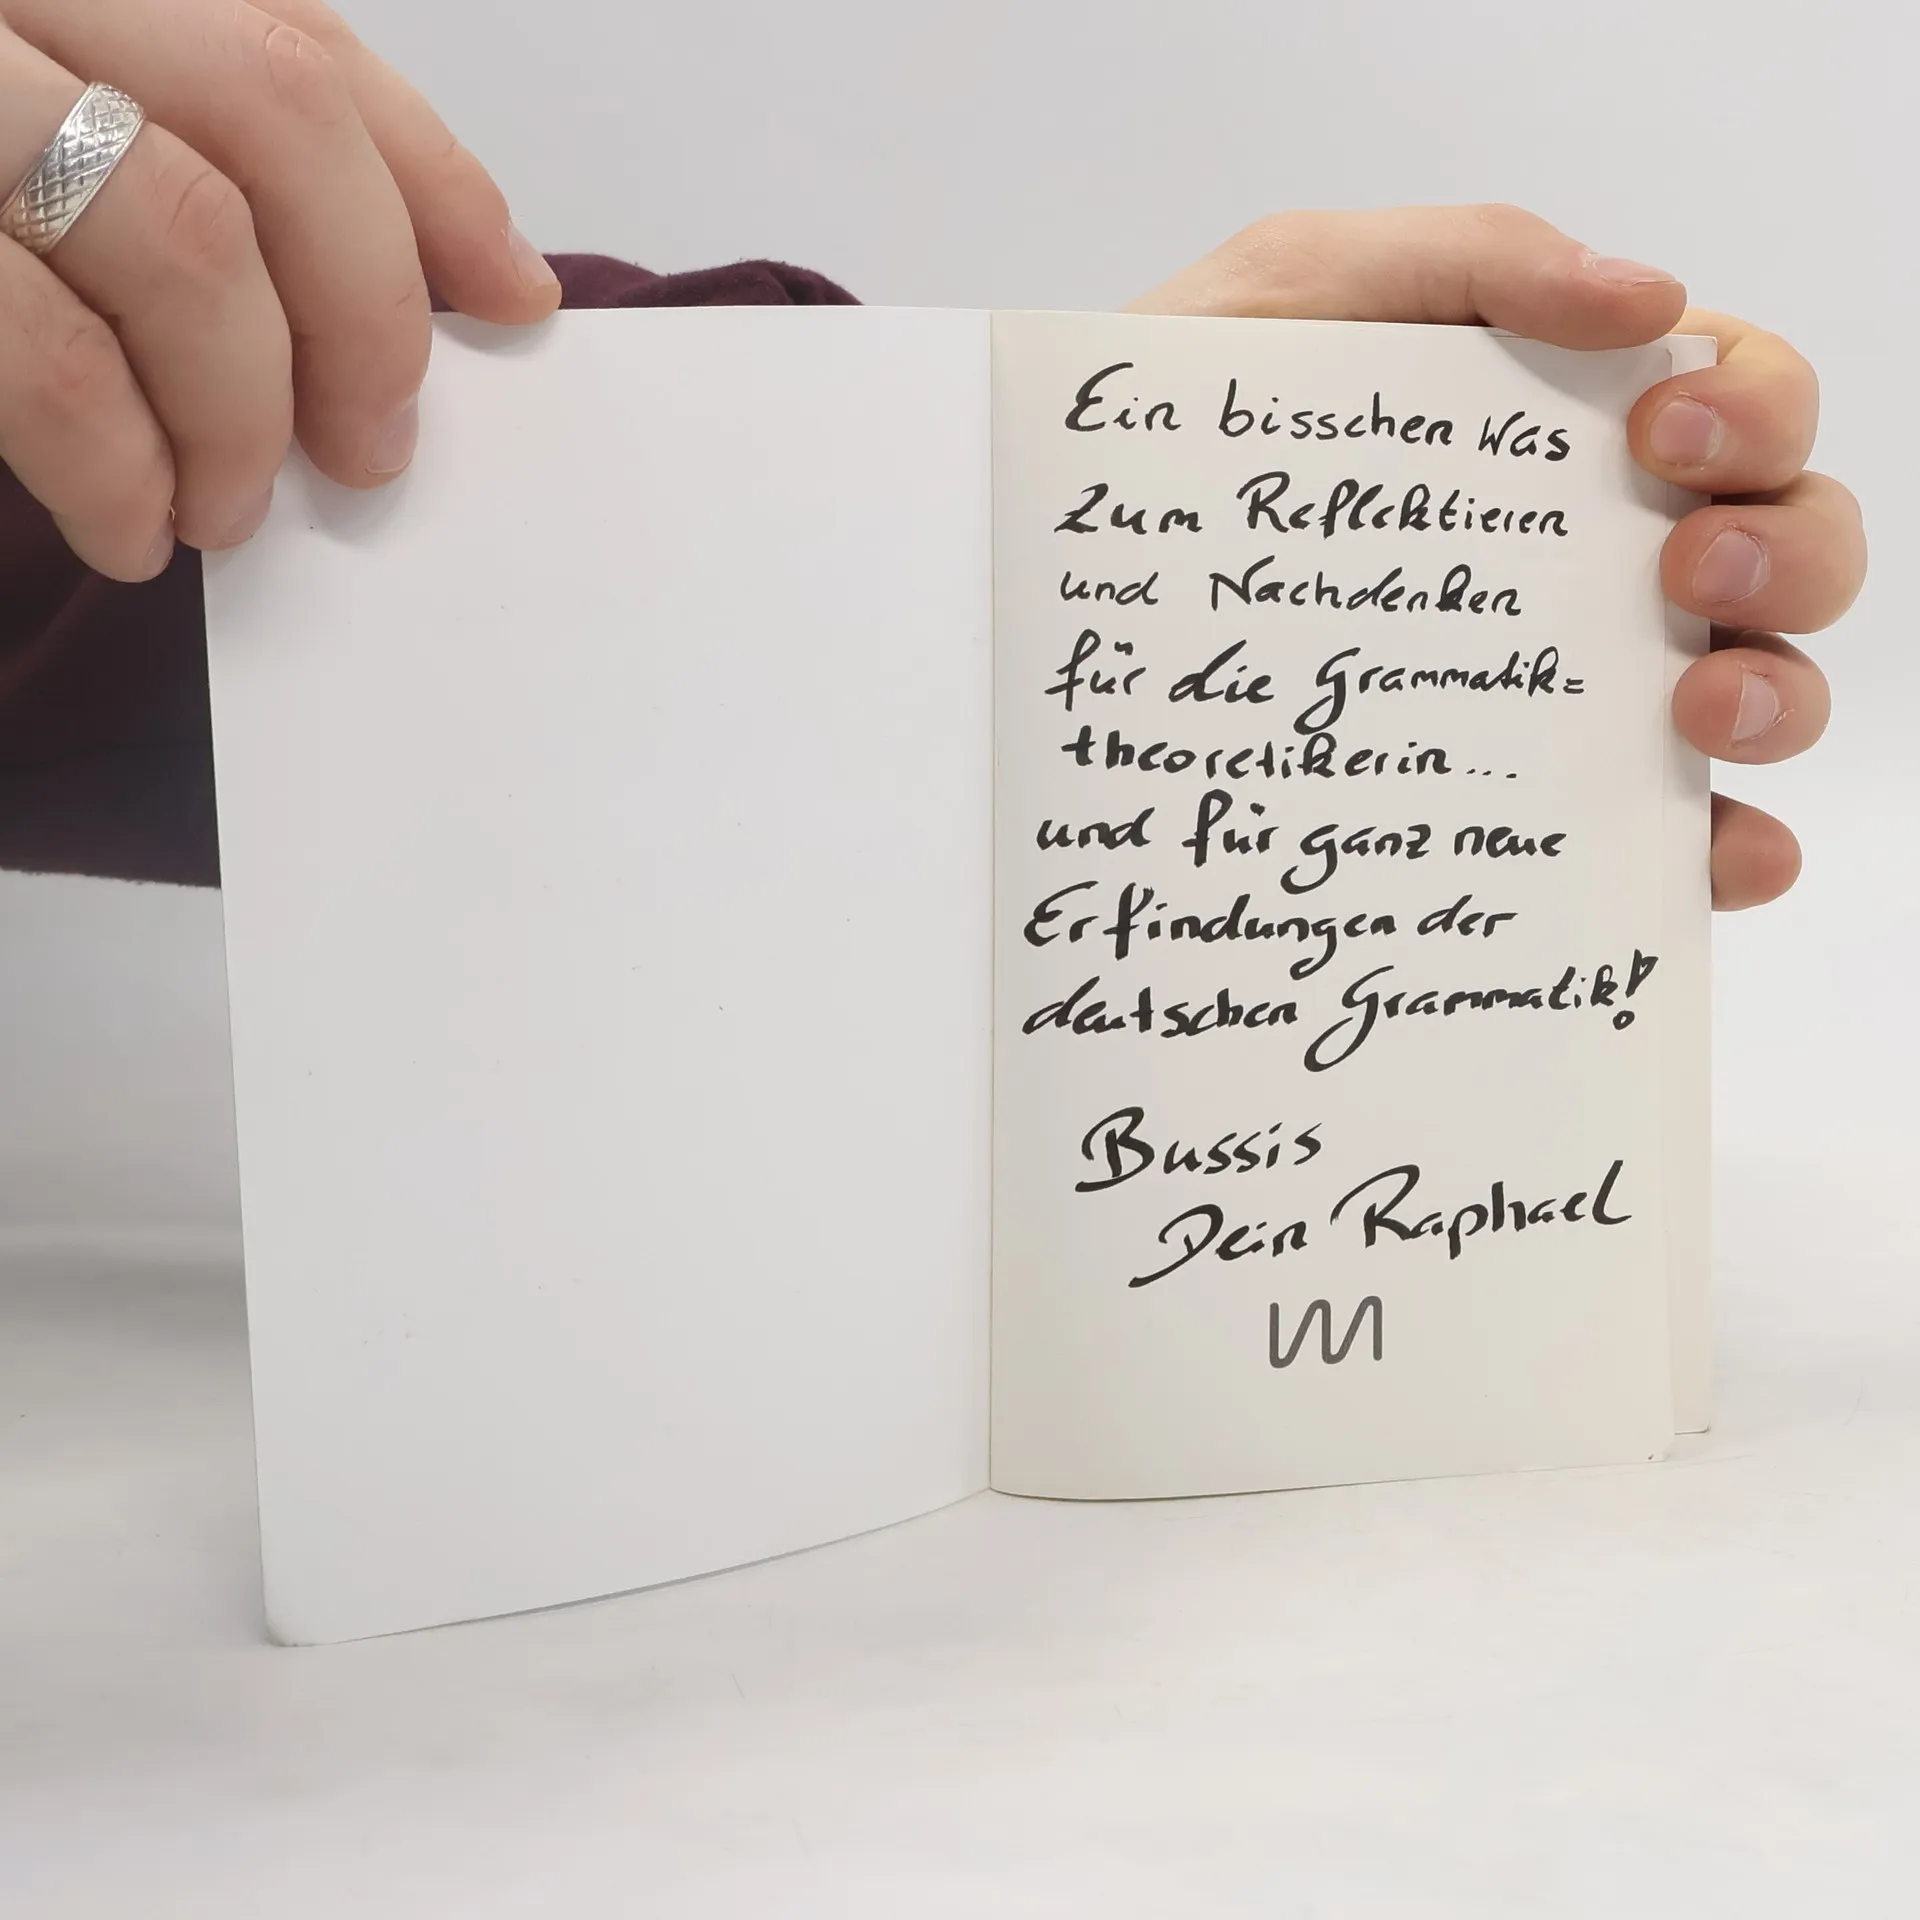 Ein bisschen Was
zum Reflektieren
und Nachdenken
für die Grammatik=
theoretikerin...
und für ganz neue
Erfindungen der
deutschen Grammatik!
Bussis
Dein Raphael